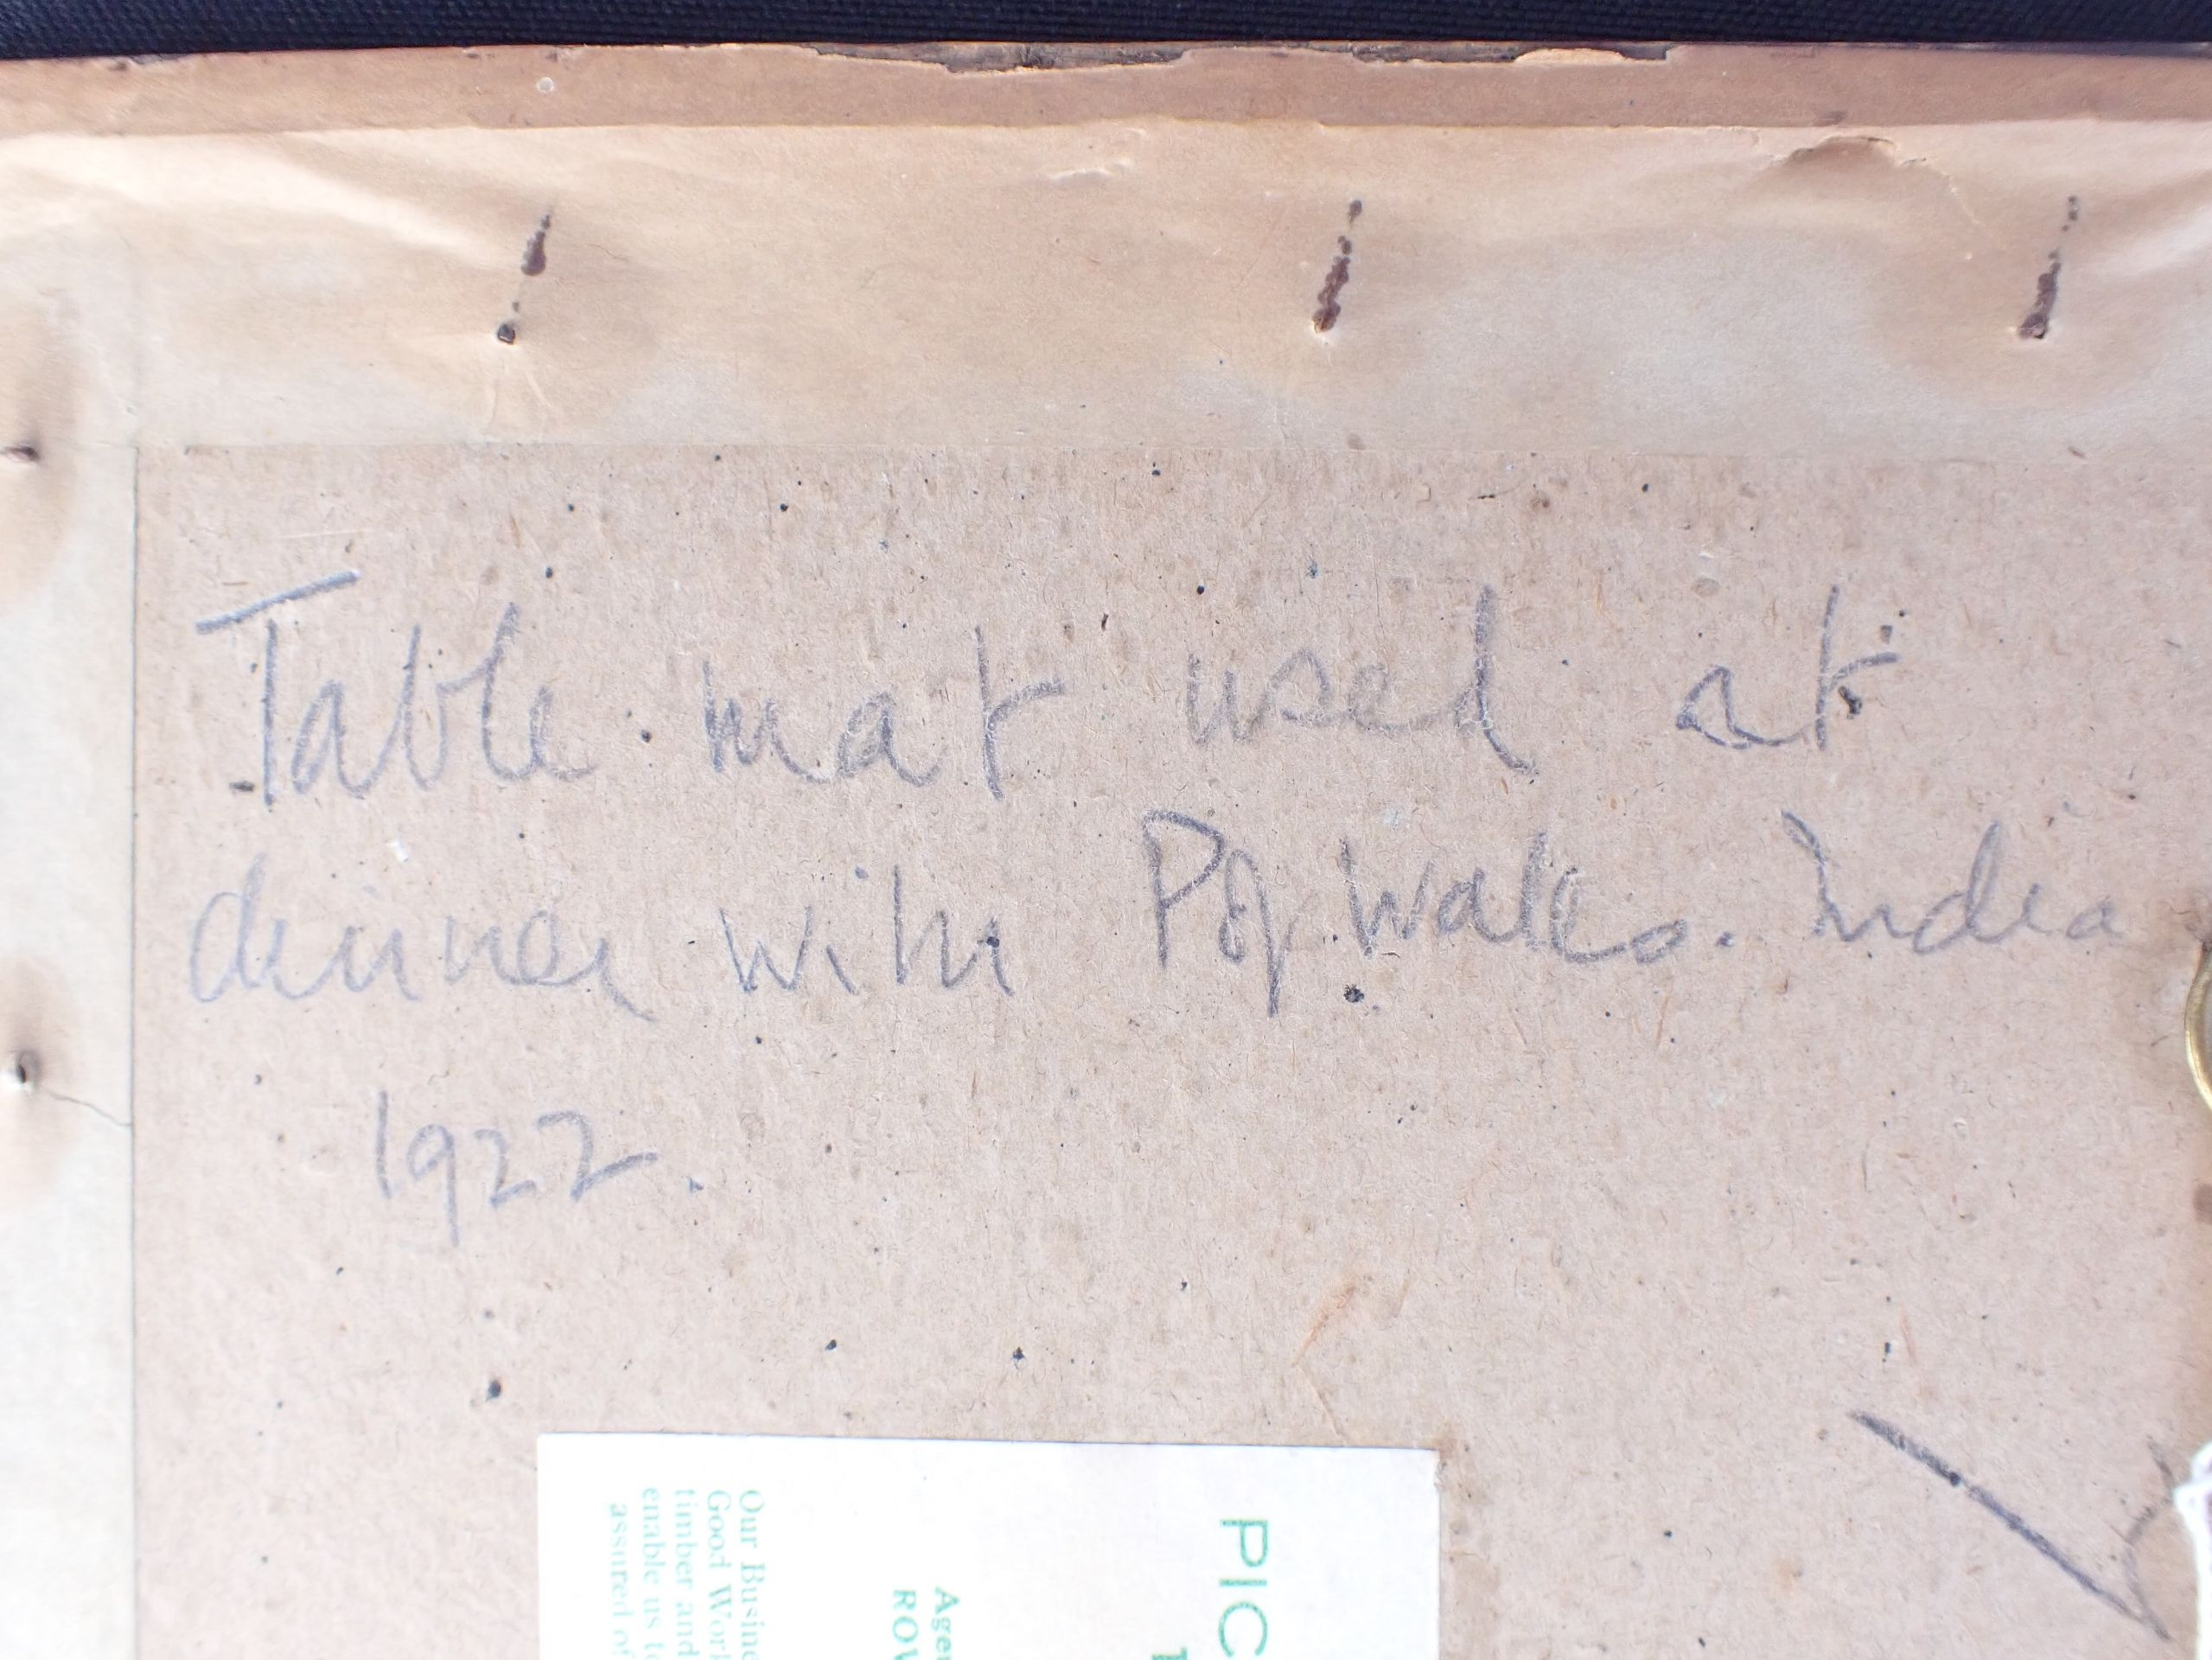 Table mat used at
dinner with P of Wales. India
1922.
PIC
Agen
ROV
Our Busine
Good Work
timber and
enable us to
assured of